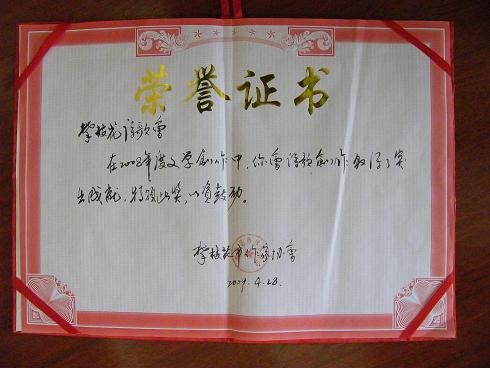 荣誉证书
攀枝花诗歌会
在2008年度文学创作中，你会诗歌创作取得了突
出成就，特颁此奖，以资鼓励。
攀枝花市作家协会
2009.4.28.